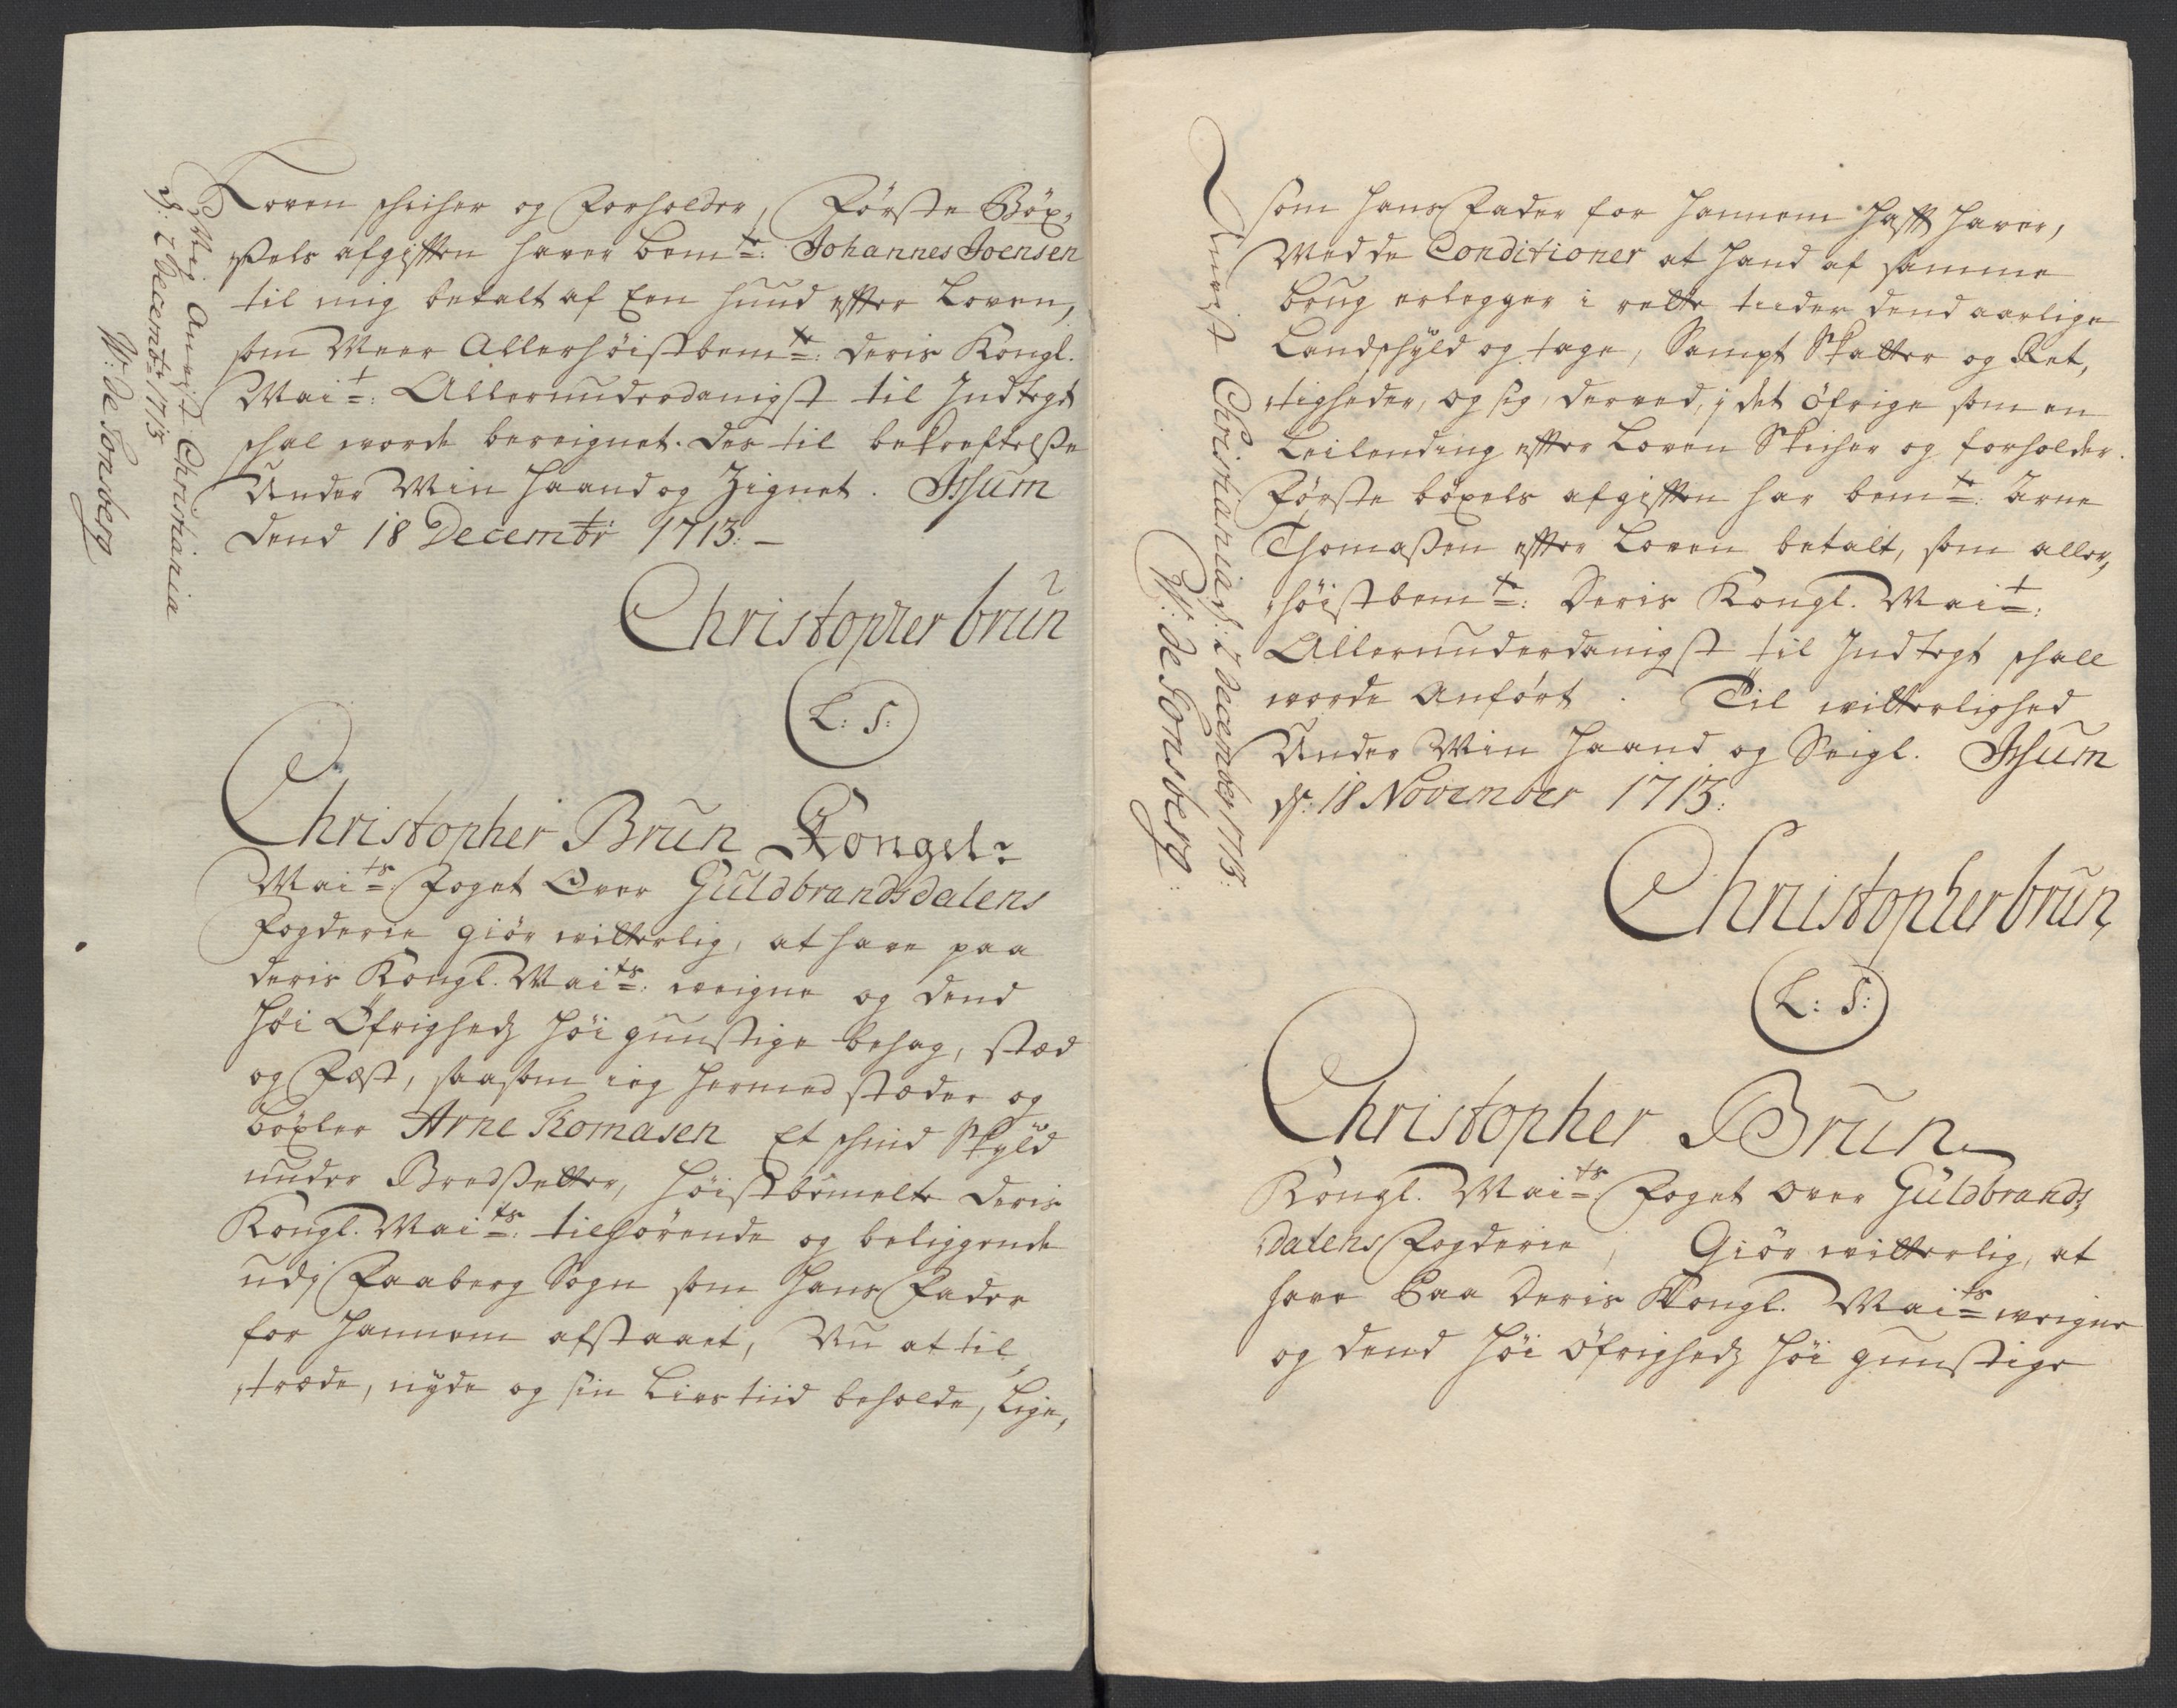 Loven schicher og forholder, Første Böx,
ßels afgifften hafver bem.te: Johannes Joensen
til mig betalt af Een hund effter Loven,
som Meer Allerhöistbem.te: Deris Kongl.
Mai.t: Allerunderdanigst til Indtegt
schal worde bereignet. Des til bekreftelße
Under Min Haand og Zignet. Jssum
Dend 18 Decembr 1713: –
Christopher brun
L: S:
Vig Anvist Christiania
d: 2 Decembr 1713
W: de Tonsberg
Christopher Brun Kongel:
Mai.ts: Foget Over Guldbrandsdalens
Fogderie giör witterlig, at have paa
Deris Kongl. Mai.ts: weigne og Dend
Höi Öfrigheds Höi gunstige behag, sted
og Fæst, saasom ieg hermed stæder og
böxler Arne Thomasen Et schind Skyld
under Bredßetter, Höistbemelte Deris
Kongl. Mai.ts: tilhörende og beliggende
udj Faaberg Sogn som Hans Fader
for Hannem afstaaet, Nu at til,
træde, nyde og sin Lives tiid beholde, Lige,
som Hans Fader for Hannem hafft haver,
Med de Conditioner at Hand af samme
brug erlegger i rette tiider Dend aarlige
Landschyld og tage, Sampt Skatter og Ret,
tigheder, og sig, derved, j det öfrige som en
Leilending effter Loven Skicher og forholder.
Förste böxels afgifften har bem.te: Arne
Thomaßen effter Loven betalt, som aller,
höistbem.te: Deris Kongl. Mai.t:
Allerunderdanigst til Indtegt schall
worde Anfört. Til witterlighed
Under Min Haand og Seigl. Jssum
d: 18 November 1713:
Christopher brun
L: S:
Anvist Christiania d: 2 December 1713:
W: de Tonsberg:
Christopher Brun
Kongl. Mai.ts: Foget over Guldbrands,
dalens Fogderie, Giör witterlig, at
have Paa Deris Kongl. Mai.ts weigne
og Dend Höi Öfrigheds Höi gunstige